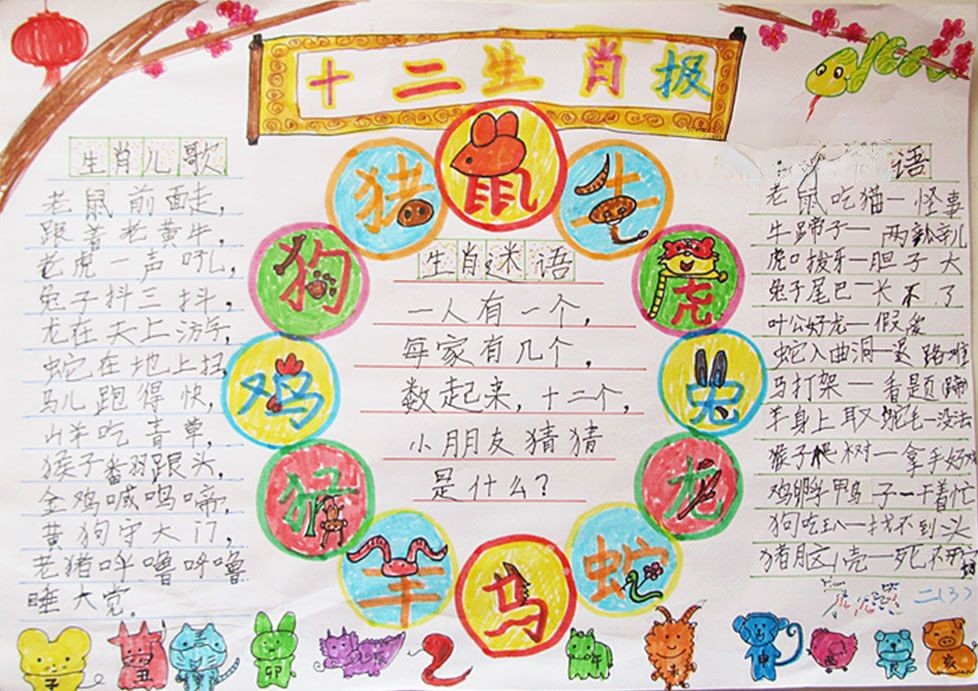 十二生肖报
生肖儿歌
老鼠前面走,
跟着老黄牛,
老虎一声吼,
兔子抖三抖,
龙在天上游,
蛇在地上扭,
马儿跑得快,
山羊吃青草,
猴子翻跟头,
金鸡喊鸣啼,
黄狗守大门,
老猪呼噜呼噜
睡大觉。
鼠
牛
虎
兔
龙
蛇
马
羊
猴
鸡
狗
猪
生肖迷语
一人有一个,
每家有几个,
数起来,十二个,
小朋友猜猜
是什么?
语
老鼠吃猫一怪事
牛蹄子一两瓣儿
虎口拔牙一胆子大
兔子尾巴一长不了
叶公好龙一假爱
蛇入曲洞一退路难
马打架一看题蹄
羊身上取驼毛一没法
猴子爬树一拿手好
鸡孵鸭子一干着忙
狗吃一找不到头
猪一死不
二(3)
子
丑
卯
辰
午
未
申
酉
戌
亥